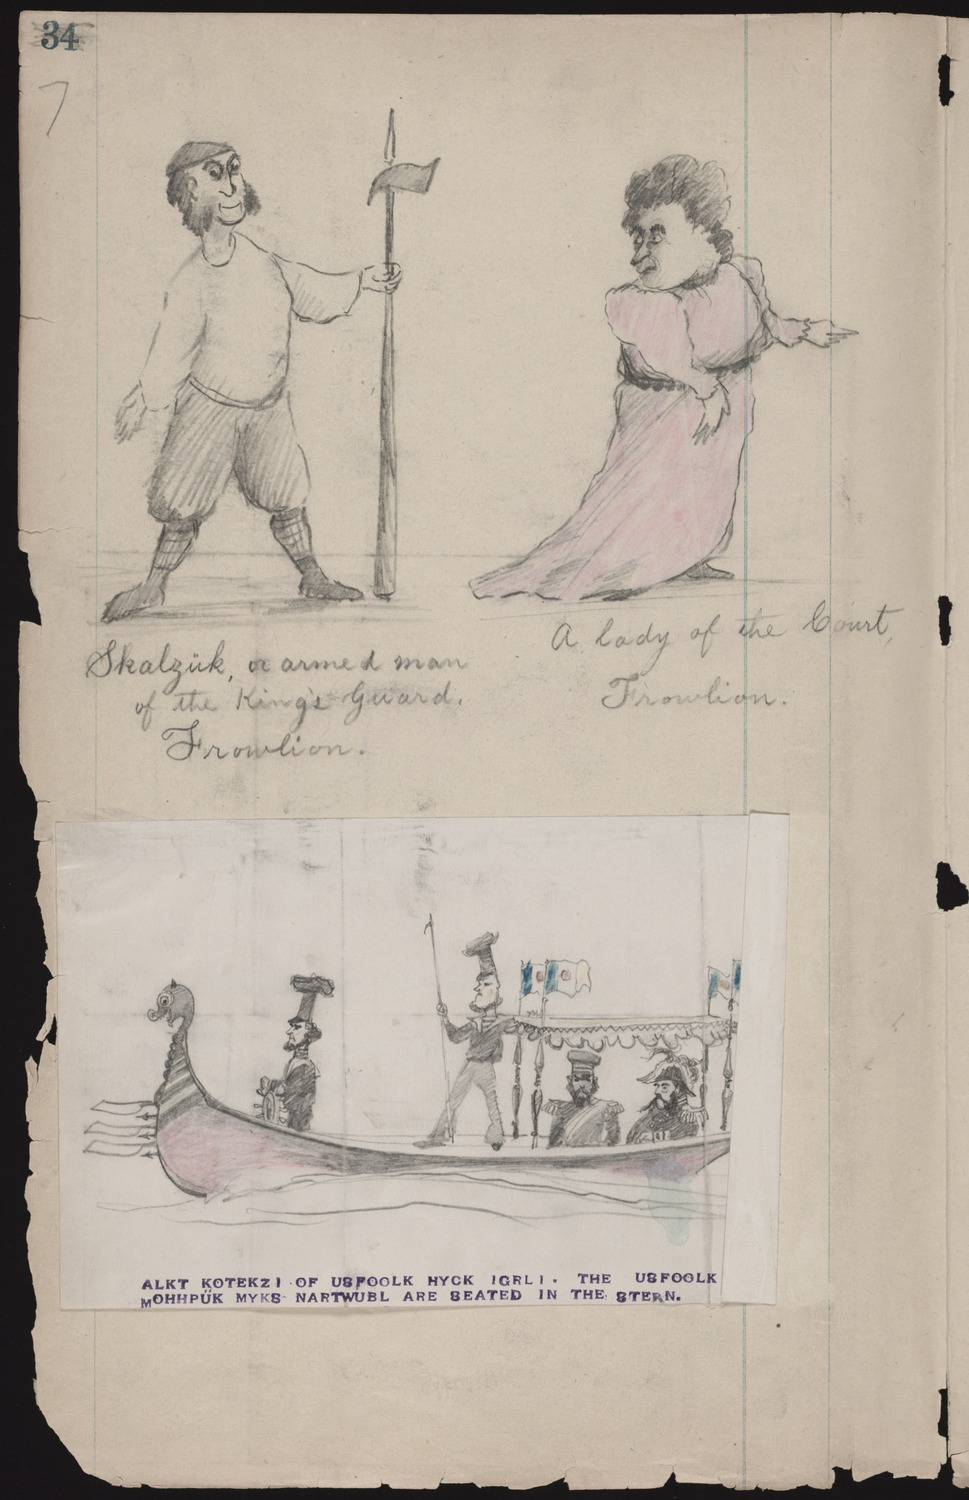 34
7
Skalzük, or armed man
of the King's Guard.
Frowlion.
A lady of the Court,
Frowlion.
ALKT KOTEKZI OF USFOOLK HYCK IGRLI. THE USFOOLK
MOHHPÜK MYKS NARTWUBL ARE SEATED IN THE STERN.